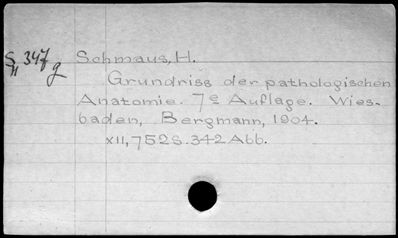 S 347 Schmaus, H.
11 g
Grundriss der pathologischen
Anatomie. 7e Auflage. Wies-
baden, Bergmann, 1904.
XII, 752 S. 342 Abb.